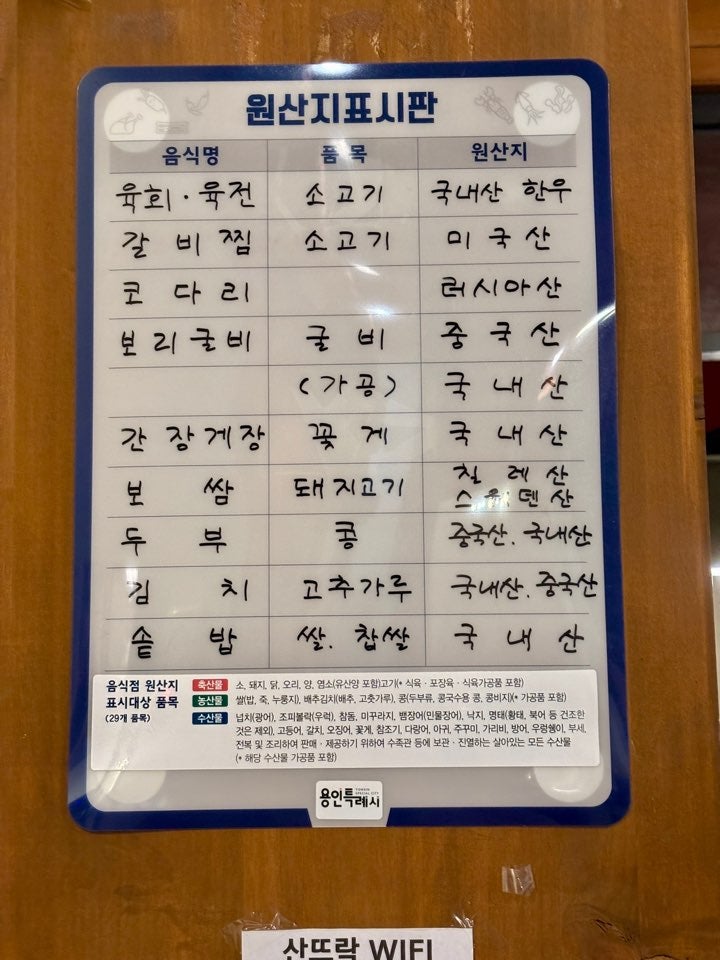 원산지표시판
음식명 품목 원산지
육회·육전 소고기 국내산 한우
갈비찜 소고기 미국산
코다리 러시아산
보리굴비 굴비 중국산
(가공) 국내산
간장게장 꽃게 국내산
보쌈 돼지고기 칠레산
스웨덴산
두부 콩 중국산. 국내산
김치 고추가루 국내산. 중국산
솥밥 쌀. 찹쌀 국내산
음식점 원산지 축산물 소, 돼지, 닭, 오리, 양, 염소(유산양 포함)고기(* 식육 · 포장육 · 식육가공품 포함)
표시대상 품목 농산물 쌀(밥, 죽, 누룽지), 배추김치(배추, 고춧가루), 콩(두부류, 콩국수용 콩, 콩비지)(* 가공품 포함)
(29개 품목) 수산물 넙치(광어), 조피볼락(우럭), 참돔, 미꾸라지, 뱀장어(민물장어), 낙지, 명태(황태, 북어 등 건조한
것은 제외), 고등어, 갈치, 오징어, 꽃게, 참조기, 다랑어, 아귀, 주꾸미, 가리비, 방어, 우렁쉥이, 부세,
전복 및 조리하여 판매 · 제공하기 위하여 수족관 등에 보관 · 진열하는 살아있는 모든 수산물
(* 해당 수산물 가공품 포함)
용인특례시 YONGIN SPECIAL CITY
산뜨락 WIFI